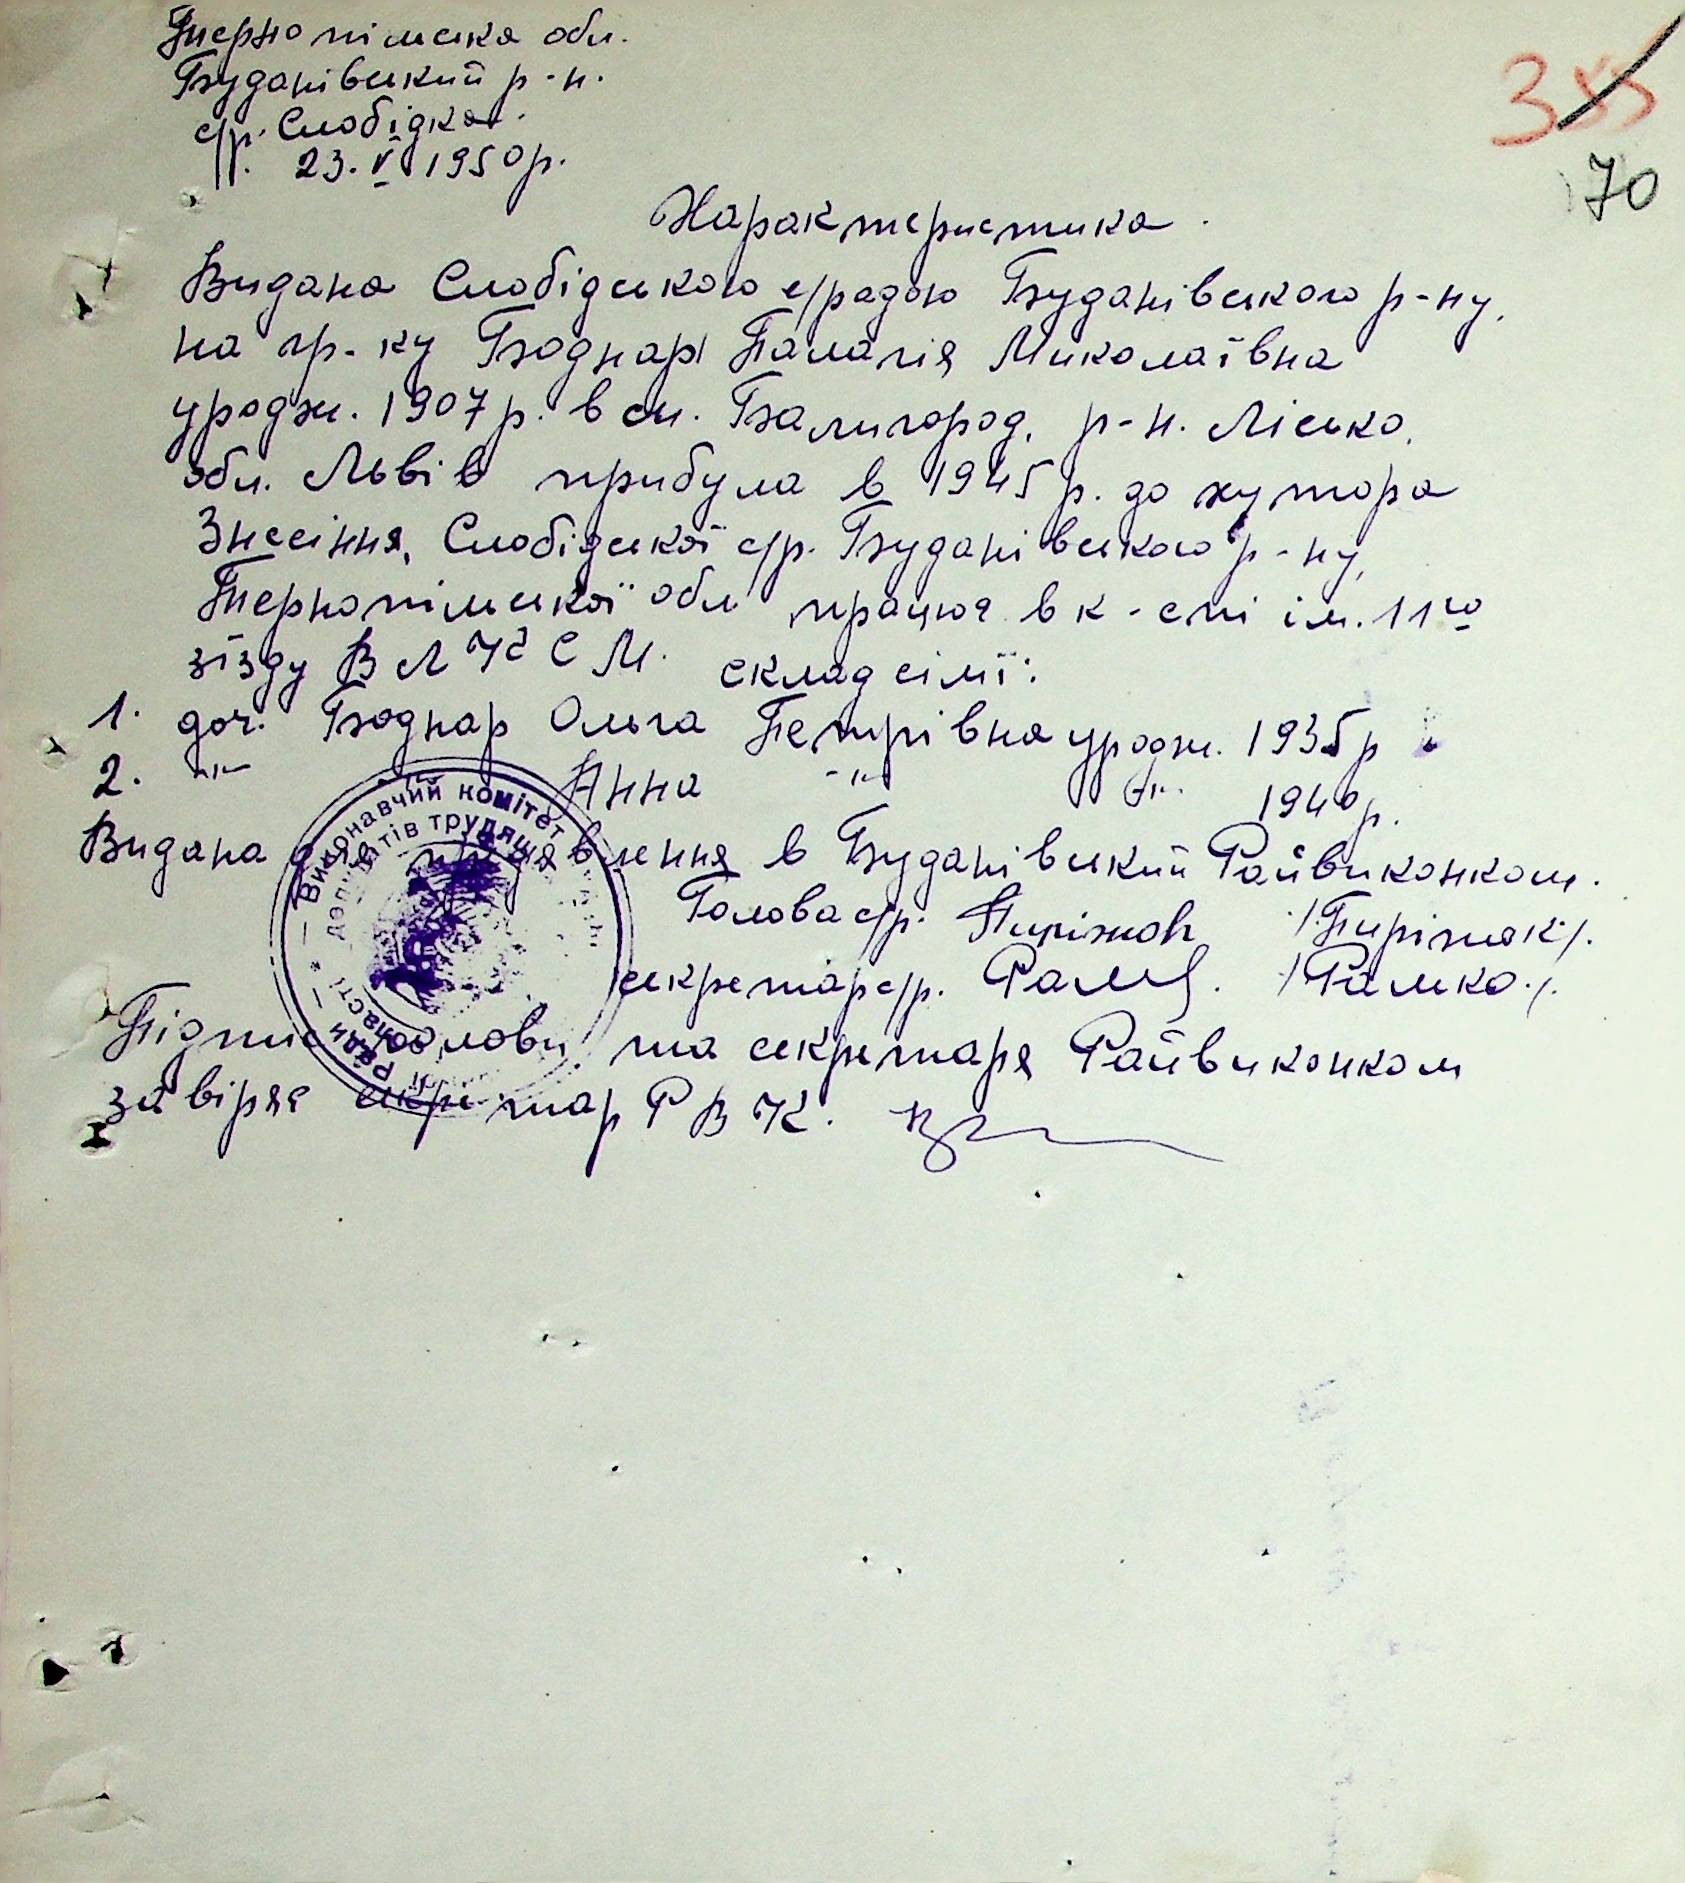 Тернопільська обл.
Буданівський р-н.
с/р. Слобідка.
23. V 1950 р.
355
70
Характеристика.
Видана Слобідською с/радою Буданівського р-ну,
на гр-ку Боднар Палагія Миколаївна
уродж. 1907 р. в см. Балигород, р-н. Лісько,
обл. Львів прибула в 1945 р. до хутора
Знесіння, Слобідської с/р. Буданівського р-ну,
Тернопільської обл працює в к-спі ім. 11го
зїзду ВЛКСМ. склад сімї:
1. доч. Боднар Ольга Петрівна уродж. 1935 р
2. -"- Анна -"- -"- 1940 р.
Видана для предявлення в Буданівський Райвиконком.
Голова с/р. Пиріжок /Пиріжок/.
секретар с/р. /Ралко./.
Підпис голови та секретаря Райвиконком
завіряє секретар РВК.
Виконавчий комітет
депутатів трудящих
Ради
області